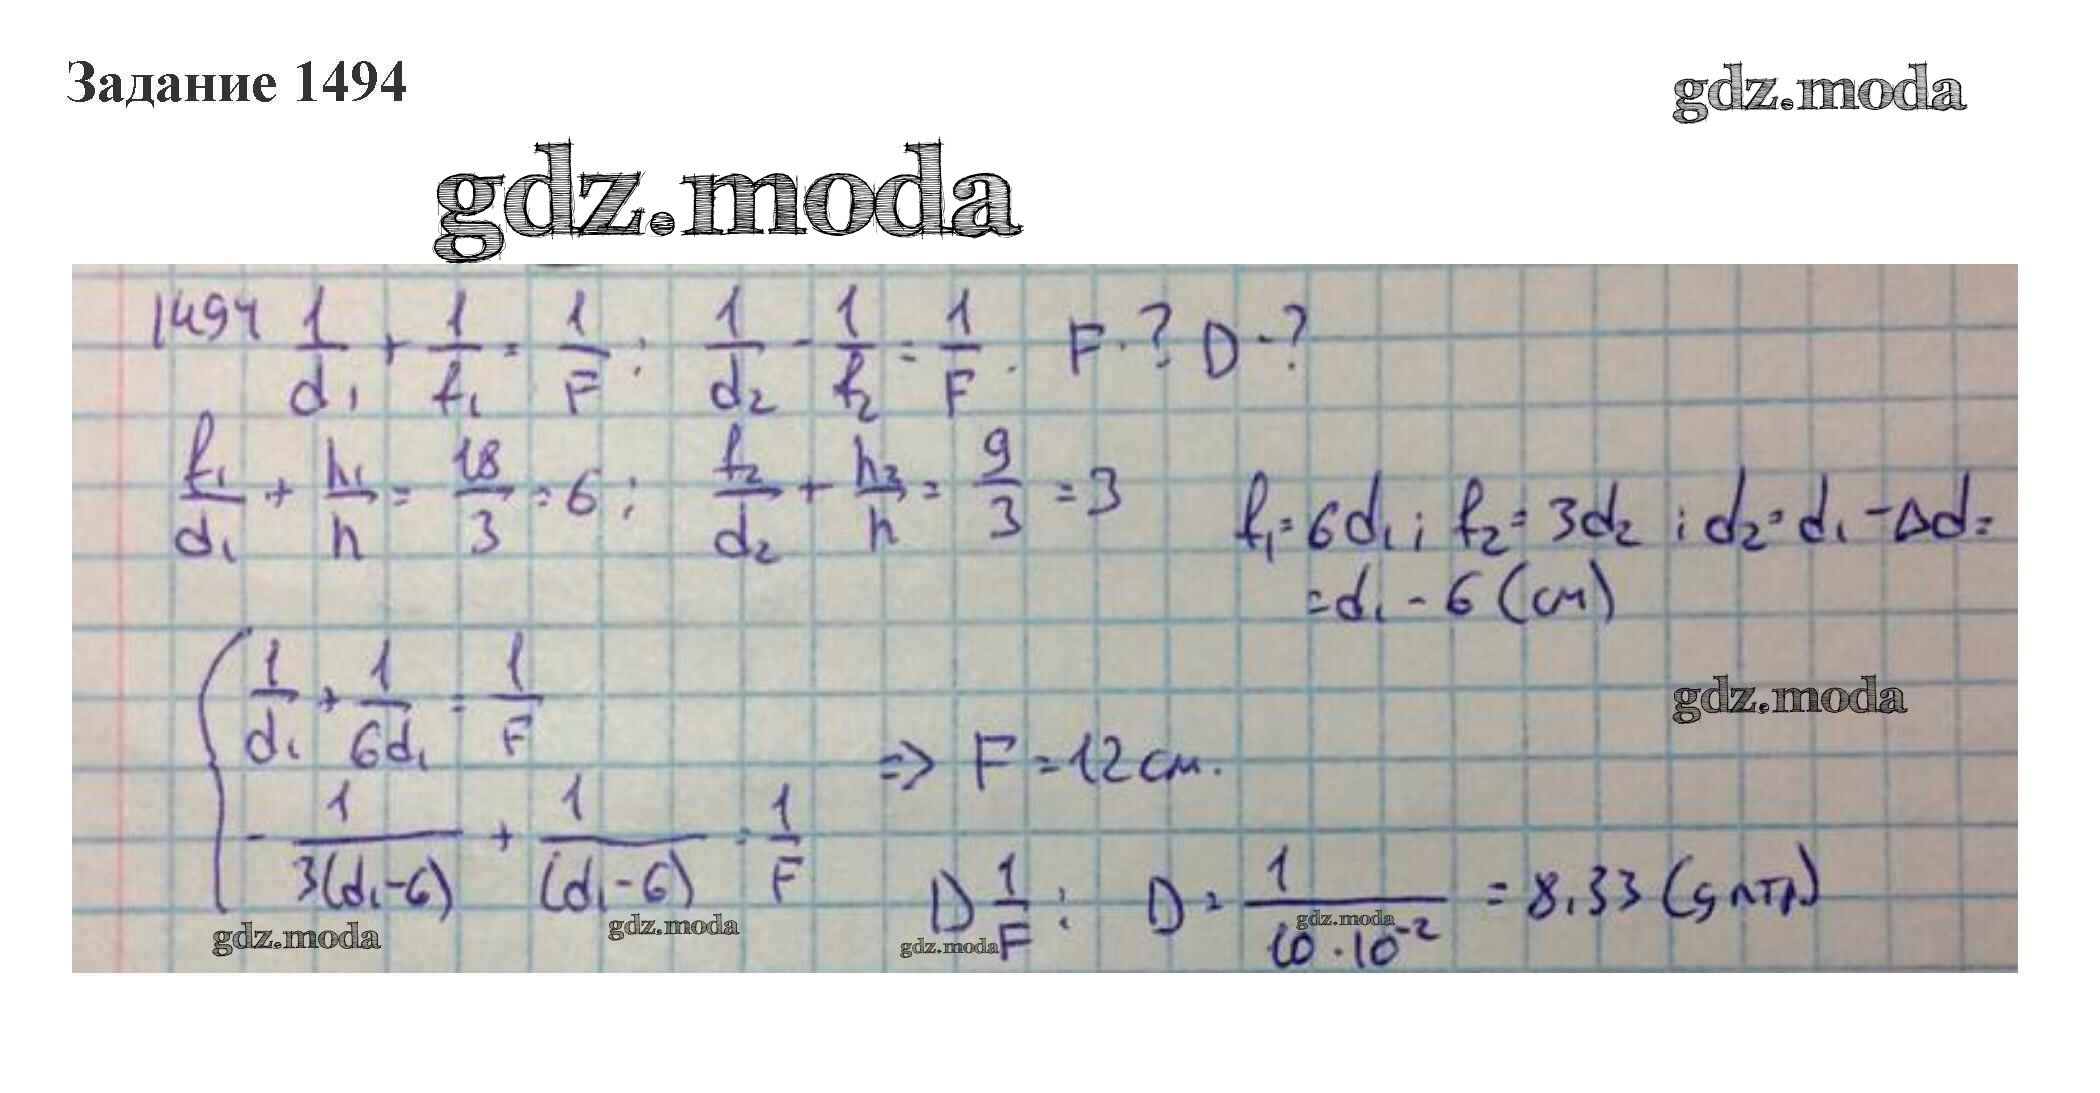 Задание 1494
gdz.moda
gdz.moda
1494 1/d₁ + 1/f₁ = 1/F ; 1/d₂ - 1/f₂ = 1/F . F-? D-?
f₁/d₁ + h₁/h = 18/3 = 6 ; f₂/d₂ + h₂/h = 9/3 = 3
f₁ = 6d₁ ; f₂ = 3d₂ ; d₂ = d₁ - Δd =
= d₁ - 6 (см)
gdz.moda
{ 1/d₁ + 1/6d₁ = 1/F
- 1/3(d₁-6) + 1/(d₁-6) = 1/F
=> F = 12 см.
D 1/F ; D = 1/10·10⁻² = 8,33 (дптр)
gdz.moda
gdz.moda
gdz.moda
gdz.moda